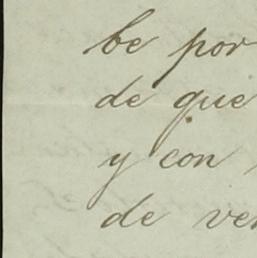 be por
de que
y con
de ver